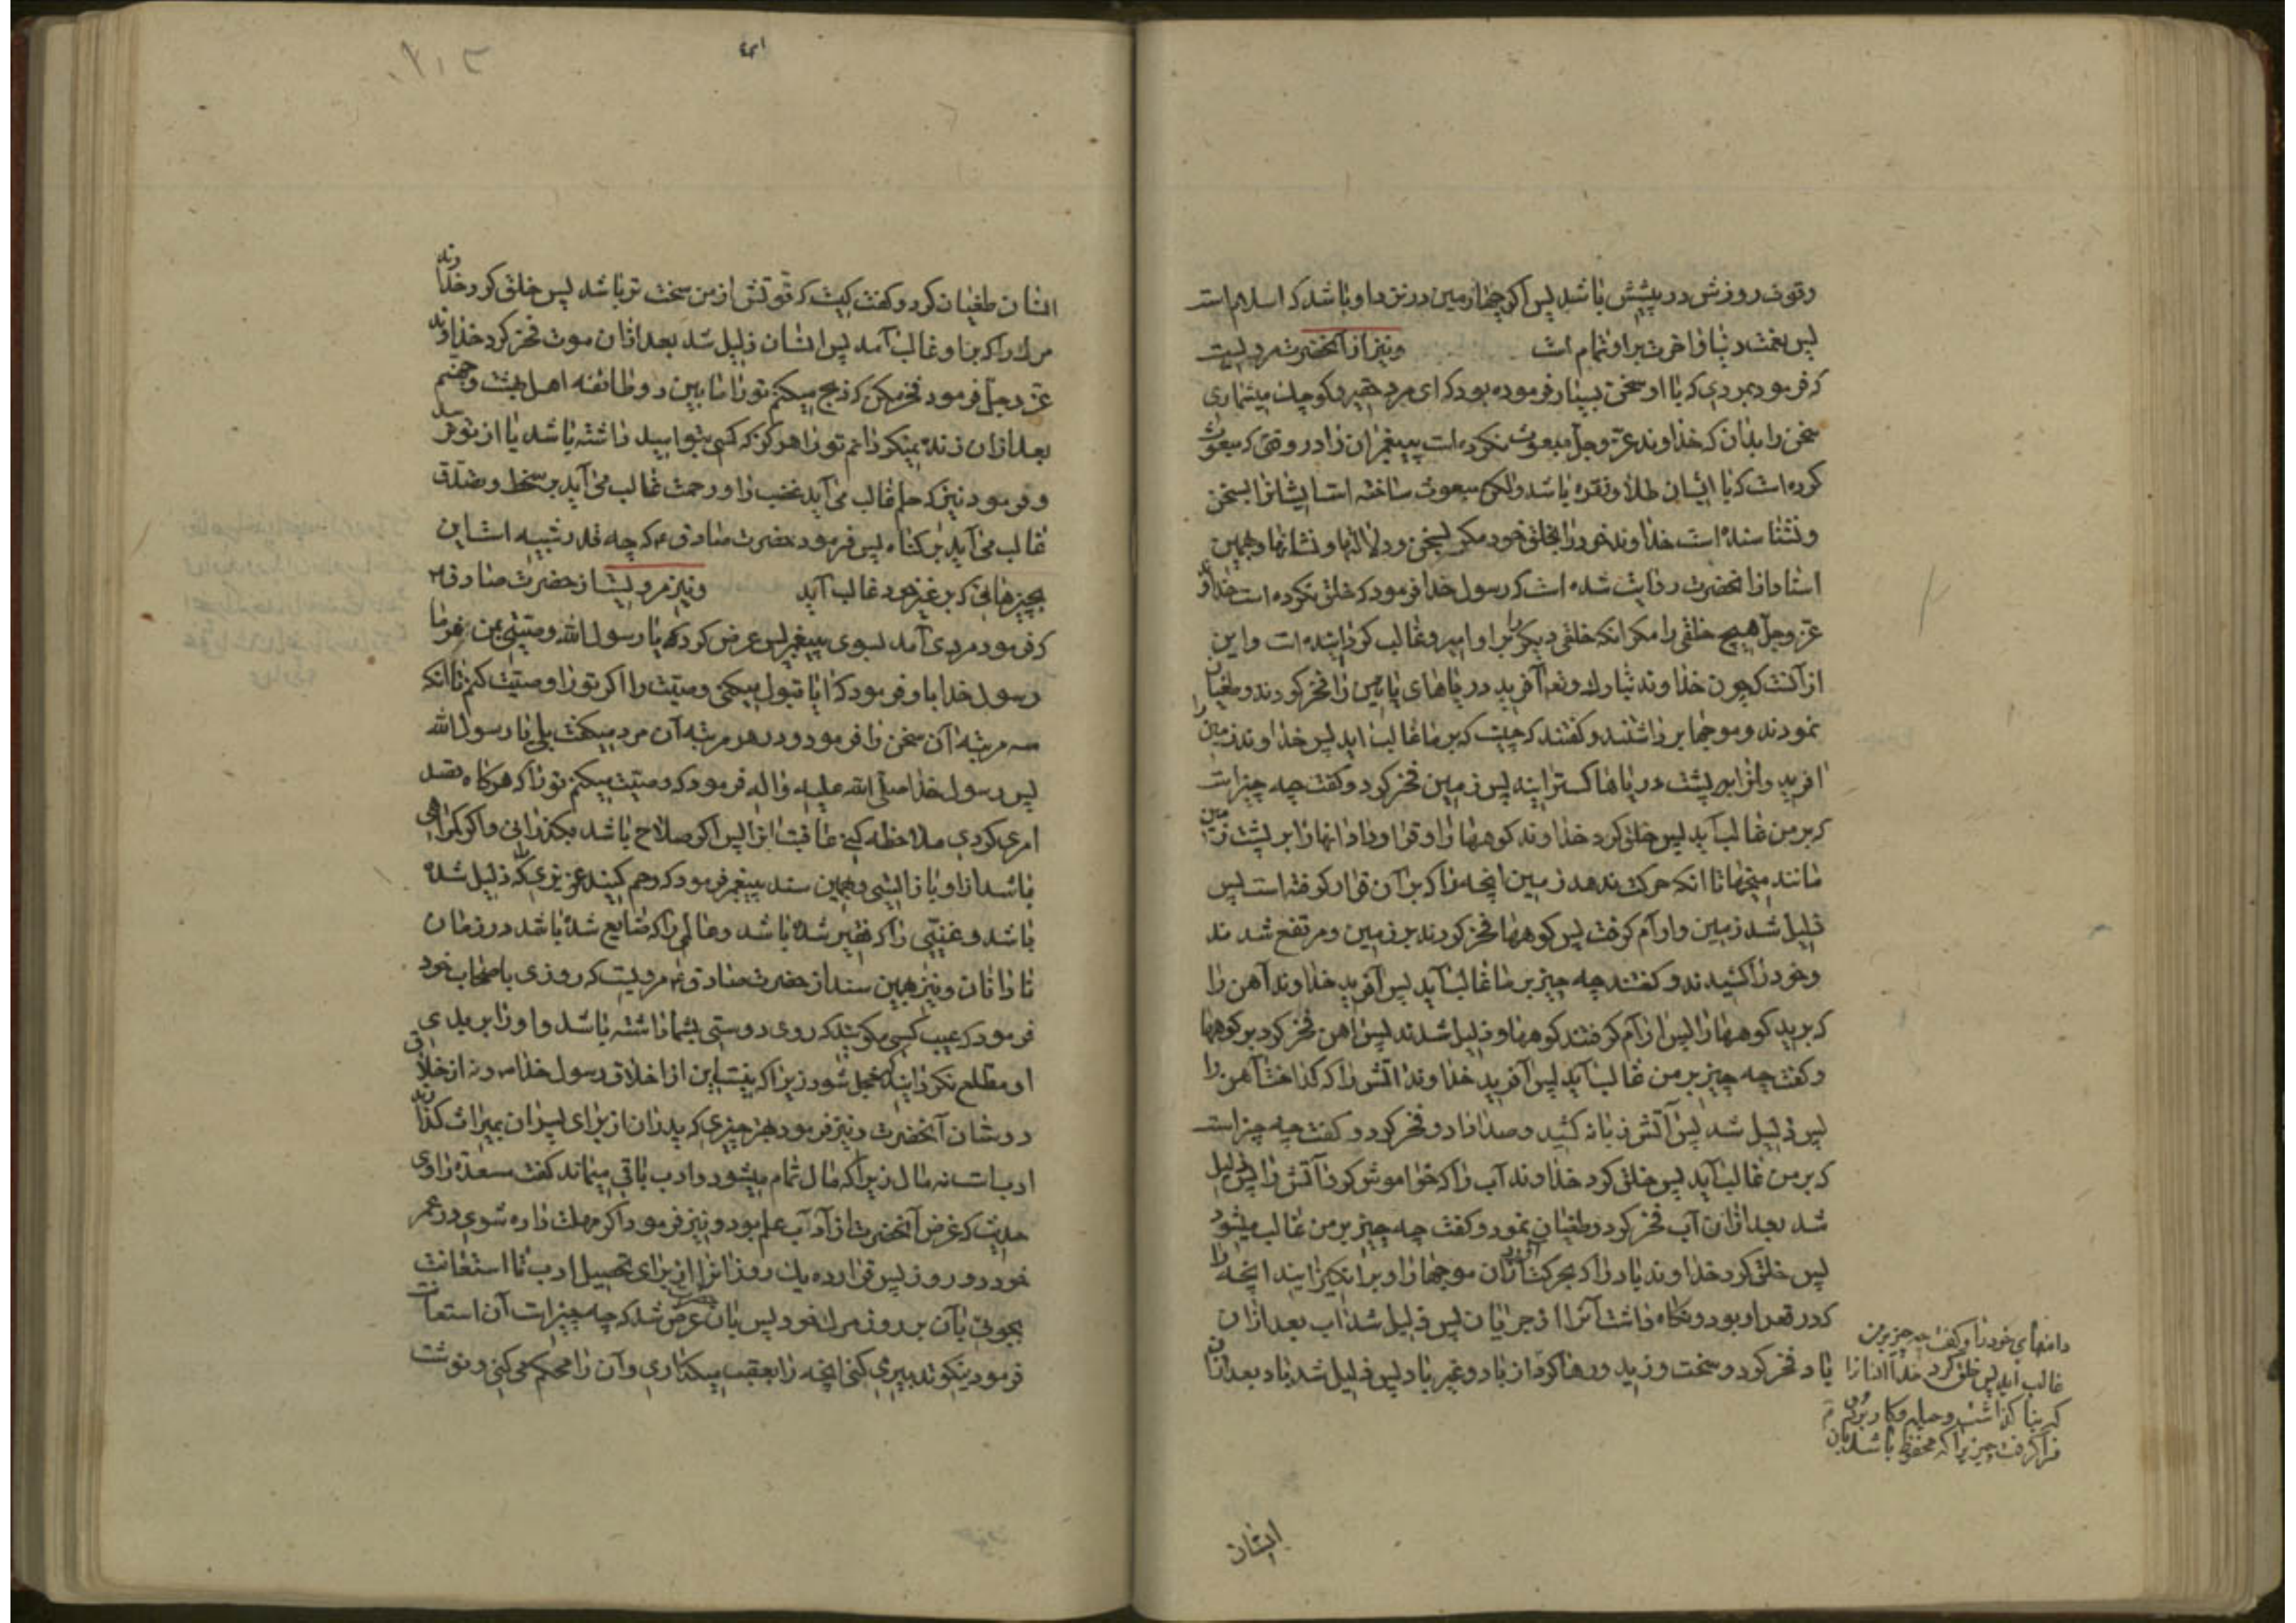 وقوت روزش در پیشش باشد پس اگر چهارمین در نزد او باشد که اسلام است
پس نعمت دنیا و اخرت بر او تمام است ونیز از آنحضرت مرویست
که فرمود بمردی که با او سخن بسیار فرموده بود که ای مرد حقیر و کوچک میشماری
سخن را بدان که خداوند عز وجل مبعوث نکرده است پیغمبران را در وقتی که مبعوث
کرده است که با ایشان طلا و نقره باشد ولکن مبعوث ساخته است ایشانرا بسخن
و نشناسانده است خداوند خود را بخلق خود مگر بسخن و دلالتها و نشانها و بهمین
اسناد از انحضرت روایت شده است که رسول خدا فرمود که خلق نکرده است خداوند
عز وجل هیچ خلقی را مگر انکه خلقی دیگر را بر او امیر و غالب گردانیده است و این
از آنست که چون خداوند تبارک وتع آفرید دریاهای پایین را فخر کردند و طغیان
نمودند و موجها برداشتند و گفتند که چیست که بر ما غالب اید پس خداوند زمین را
افرید وانرا بر پشت دریاها گسترانید پس زمین فخر کرد و گفت چه چیز است
که بر من غالب آید پس خلق کرد خداوند کوهها را و قرار داد انها را بر پشت زمین
مانند میخها تا انکه حرکت ندهد زمین انچه را که بر آن قرار گرفته است پس
ذلیل شد زمین و ارام گرفت پس کوهها فخر کردند بر زمین و مرتفع شدند
وخود را کشیدند و گفتند چه چیز بر ما غالب آید پس آفرید خداوند آهن را
که برید کوهها را پس ارام گرفتند کوهها و ذلیل شدند پس اهن فخر کرد بر کوهها
و گفت چه چیز بر من غالب آید پس آفرید خداوند اتش را که گداخت آهن را
پس ذلیل شد پس آتش زبانه کشید و صدا داد و فخر کرد و گفت چه چیز است
که بر من غالب آید پس خلق کرد خداوند آب را که خواموش کرد آتش را پس ذلیل
شد بعد ازان آب فخر کرد و طغیان نمود و گفت چه چیز بر من غالب میشود
پس خلق کرد خداوند باد را که بحرکت آورد آن موجها را و برانگیزانید انچه را
که در قعر او بود و نگاه داشت آنرا از جریان پس ذلیل شد اب بعد ازان
باد فخر کرد و سخت وزید و رها کرد باد پس ذلیل شد باد بعد ازان
دامنهای خود را و گفت چه چیز بر من
غالب اید پس خلق کرد خدا انسانرا
که بنا گذاشت و حیله و کار بزرگی
فرا گرفت چیزیرا که محفوظ باشد بان
ایشان
انسان طغیان کرد و گفت کیست که قوتش از من سخت تر باشد پس خلق کرد خداوند
مرگ را که بر او غالب آمد پس انسان ذلیل شد بعد ازان موت فخر کرد خداوند
عز وجل فرمود فخر مکن که ذبح میکنم تو را ما بین دو طائفه اهل بهشت و جهنم
بعد ازان زنده نمیگردانم تو را هرگز که کسی بتو امید داشته باشد یا از تو ترسد
و فرمود نیز که حلم غالب می آید غضب را و رحمت غالب می آید بر سخط و صدقه
غالب می آید بر گناه پس فرمود حضرت صادق ع که چه قدر شبیه است این
بچیزهائی که بر غیر خود غالب آید ونیز مرویست از حضرت صادق ع
که فرمود مردی آمد بسوی پیغمبر پس عرض کرد که یا رسول الله وصیتی بمن بفرما
رسول خدا باو فرمود که ایا قبول میکنی وصیت را اگر تو را وصیت کنم تا انکه
سه مرتبه آن سخن را فرمود و در هر مرتبه آن مرد میگفت بلی یا رسول الله
پس رسول خدا صلی الله علیه واله فرمود که وصیت میکنم تو را که هرگاه قصد
امری کردی ملاحظه کنی عاقبت انرا پس اگر صلاح باشد بگذرانی و اگر گمراهی
باشد از او باز ایستی و بهمین سند پیغمبر فرمود که رحم کنید عزیزی را که ذلیل شده
باشد و غنیی را که فقیر شده باشد و عالمی را که ضایع شده باشد در زمان
نادانان و نیز بهمین سند از حضرت صادق ع مرویست که روزی باصحاب خود
فرمود که عیب کسی مگوئید که روی دوستی بشما داشته باشد و او را بر بدی
او مطلع نگردانید که خجل شود زیرا که نیست این از اخلاق رسول خدا ص و نه از اخلاق
دوستان آنحضرت و نیز فرمود بهتر چیزی که پدران از برای پسران بمیراث گذارند
ادب است نه مال زیرا که مال تمام میشود و ادب باقی میماند گفت مسعدة راوی
حدیث که غرض آنحضرت از آداب علم بود و نیز فرمود اگر مهلت داده شوی در عمر
خود دو روز پس قرار ده یک روز انرا از برای تحصیل ادب تا استعانت
بجوئی بآن بر روز مرگ خود پس بان حضرت عرض شد که چه چیز است آن استعانت
فرمود نیکو تدبیر می کنی انچه را بعقب میگذاری و آن را محکم می کنی و نوشت